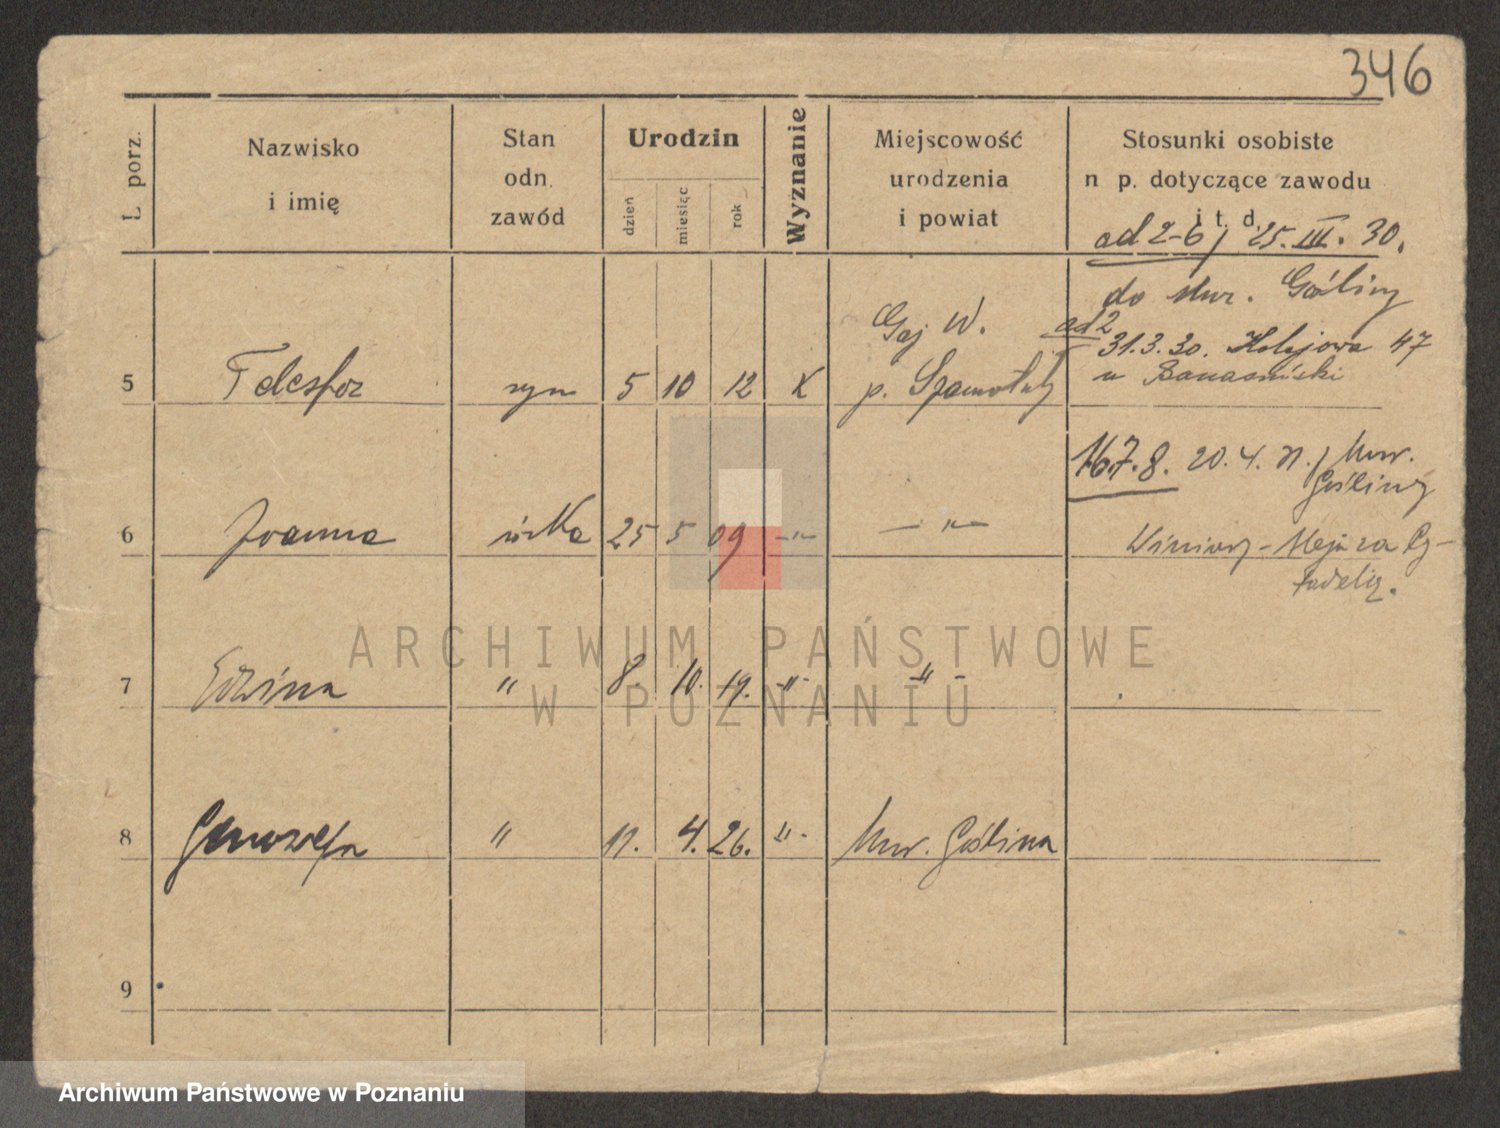 346
L. porz.
Nazwisko
i imię
Stan
odn.
zawód
Urodzin
dzień
miesiąc
rok
Wyznanie
Miejscowość
urodzenia
i powiat
Stosunki osobiste
n p. dotyczące zawodu
i t. d.
ad 2-6) 25. III. 30.
do Mur. Gośliny
ad 2
31.3.30. Kolejowa 47
u
5 Telesfor syn 5 10 12 K Gaj W.
p. Szamotuły
20.4. Mur.
Gośliny
6 Joanna córka 25 5 09 -"- -"-
Winiary -
7 Edwina " 8. 10. 19. -"- -"-
8 Genowefa " 11. 4. 26. -"- Mur. Goślina
9
ARCHIWUM PAŃSTWOWE
W POZNANIU
Archiwum Państwowe w Poznaniu